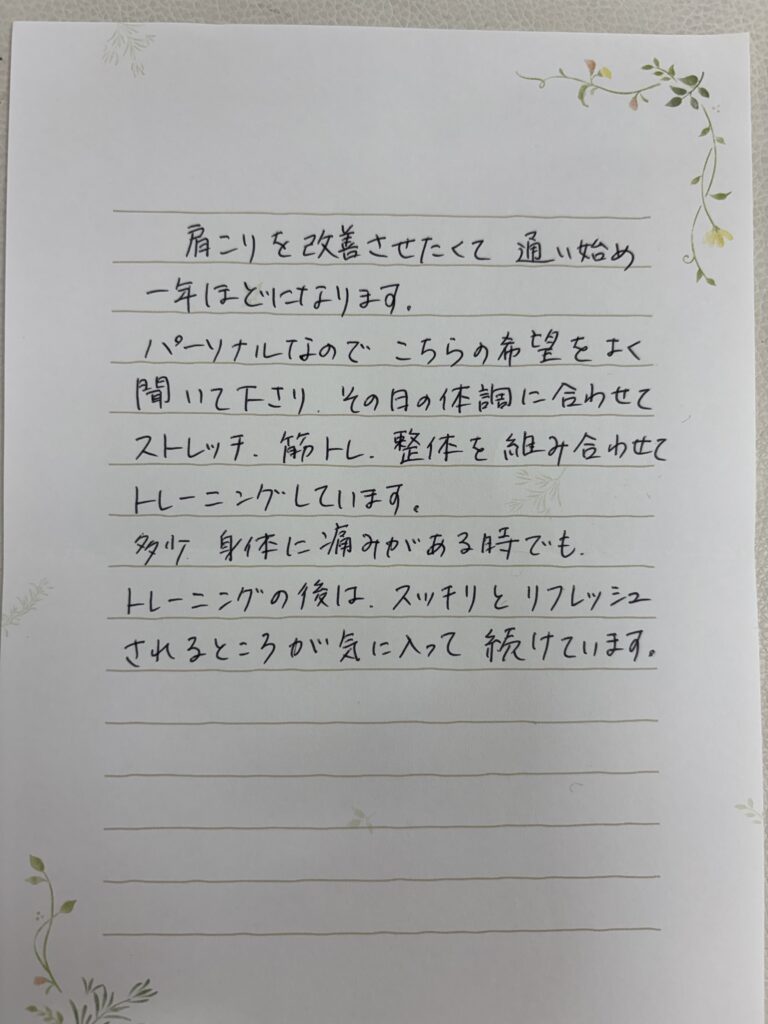 肩こりを改善させたくて 通い始め
一年ほどになります。
パーソナルなので こちらの希望をよく
聞いて下さり、その日の体調に合わせて
ストレッチ、筋トレ、整体を組み合わせて
トレーニングしています。
多少 身体に痛みがある時でも、
トレーニングの後は、スッキリと リフレッシュ
されるところが気に入って 続けています。